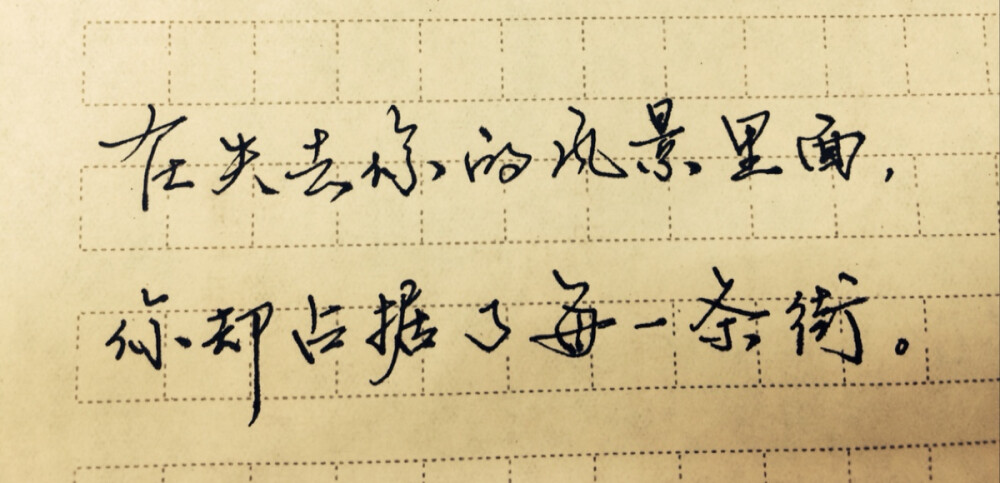 在失去你的风景里面，
你却占据了每一条街。